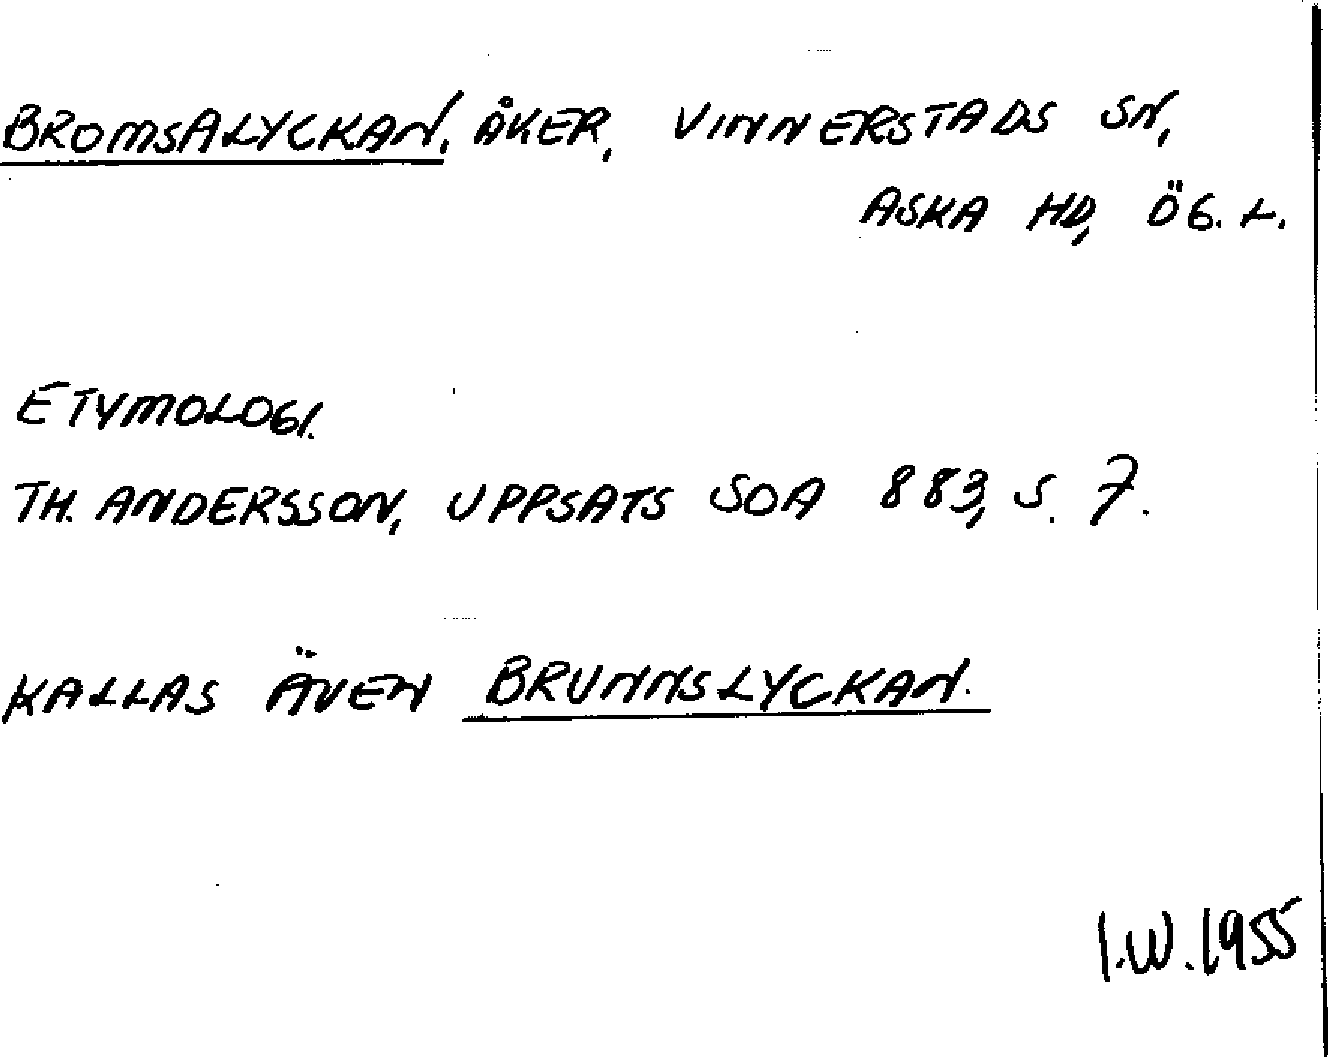 BROMSALYCKAN, ÅKER, VINNERSTADS SN,
ASKA HD, ÖG. L.
ETYMOLOGI.
TH. ANDERSSON, UPPSATS SOA 883, S. 7.
KALLAS ÄVEN BRUNNSLYCKAN.
I.W. 1955